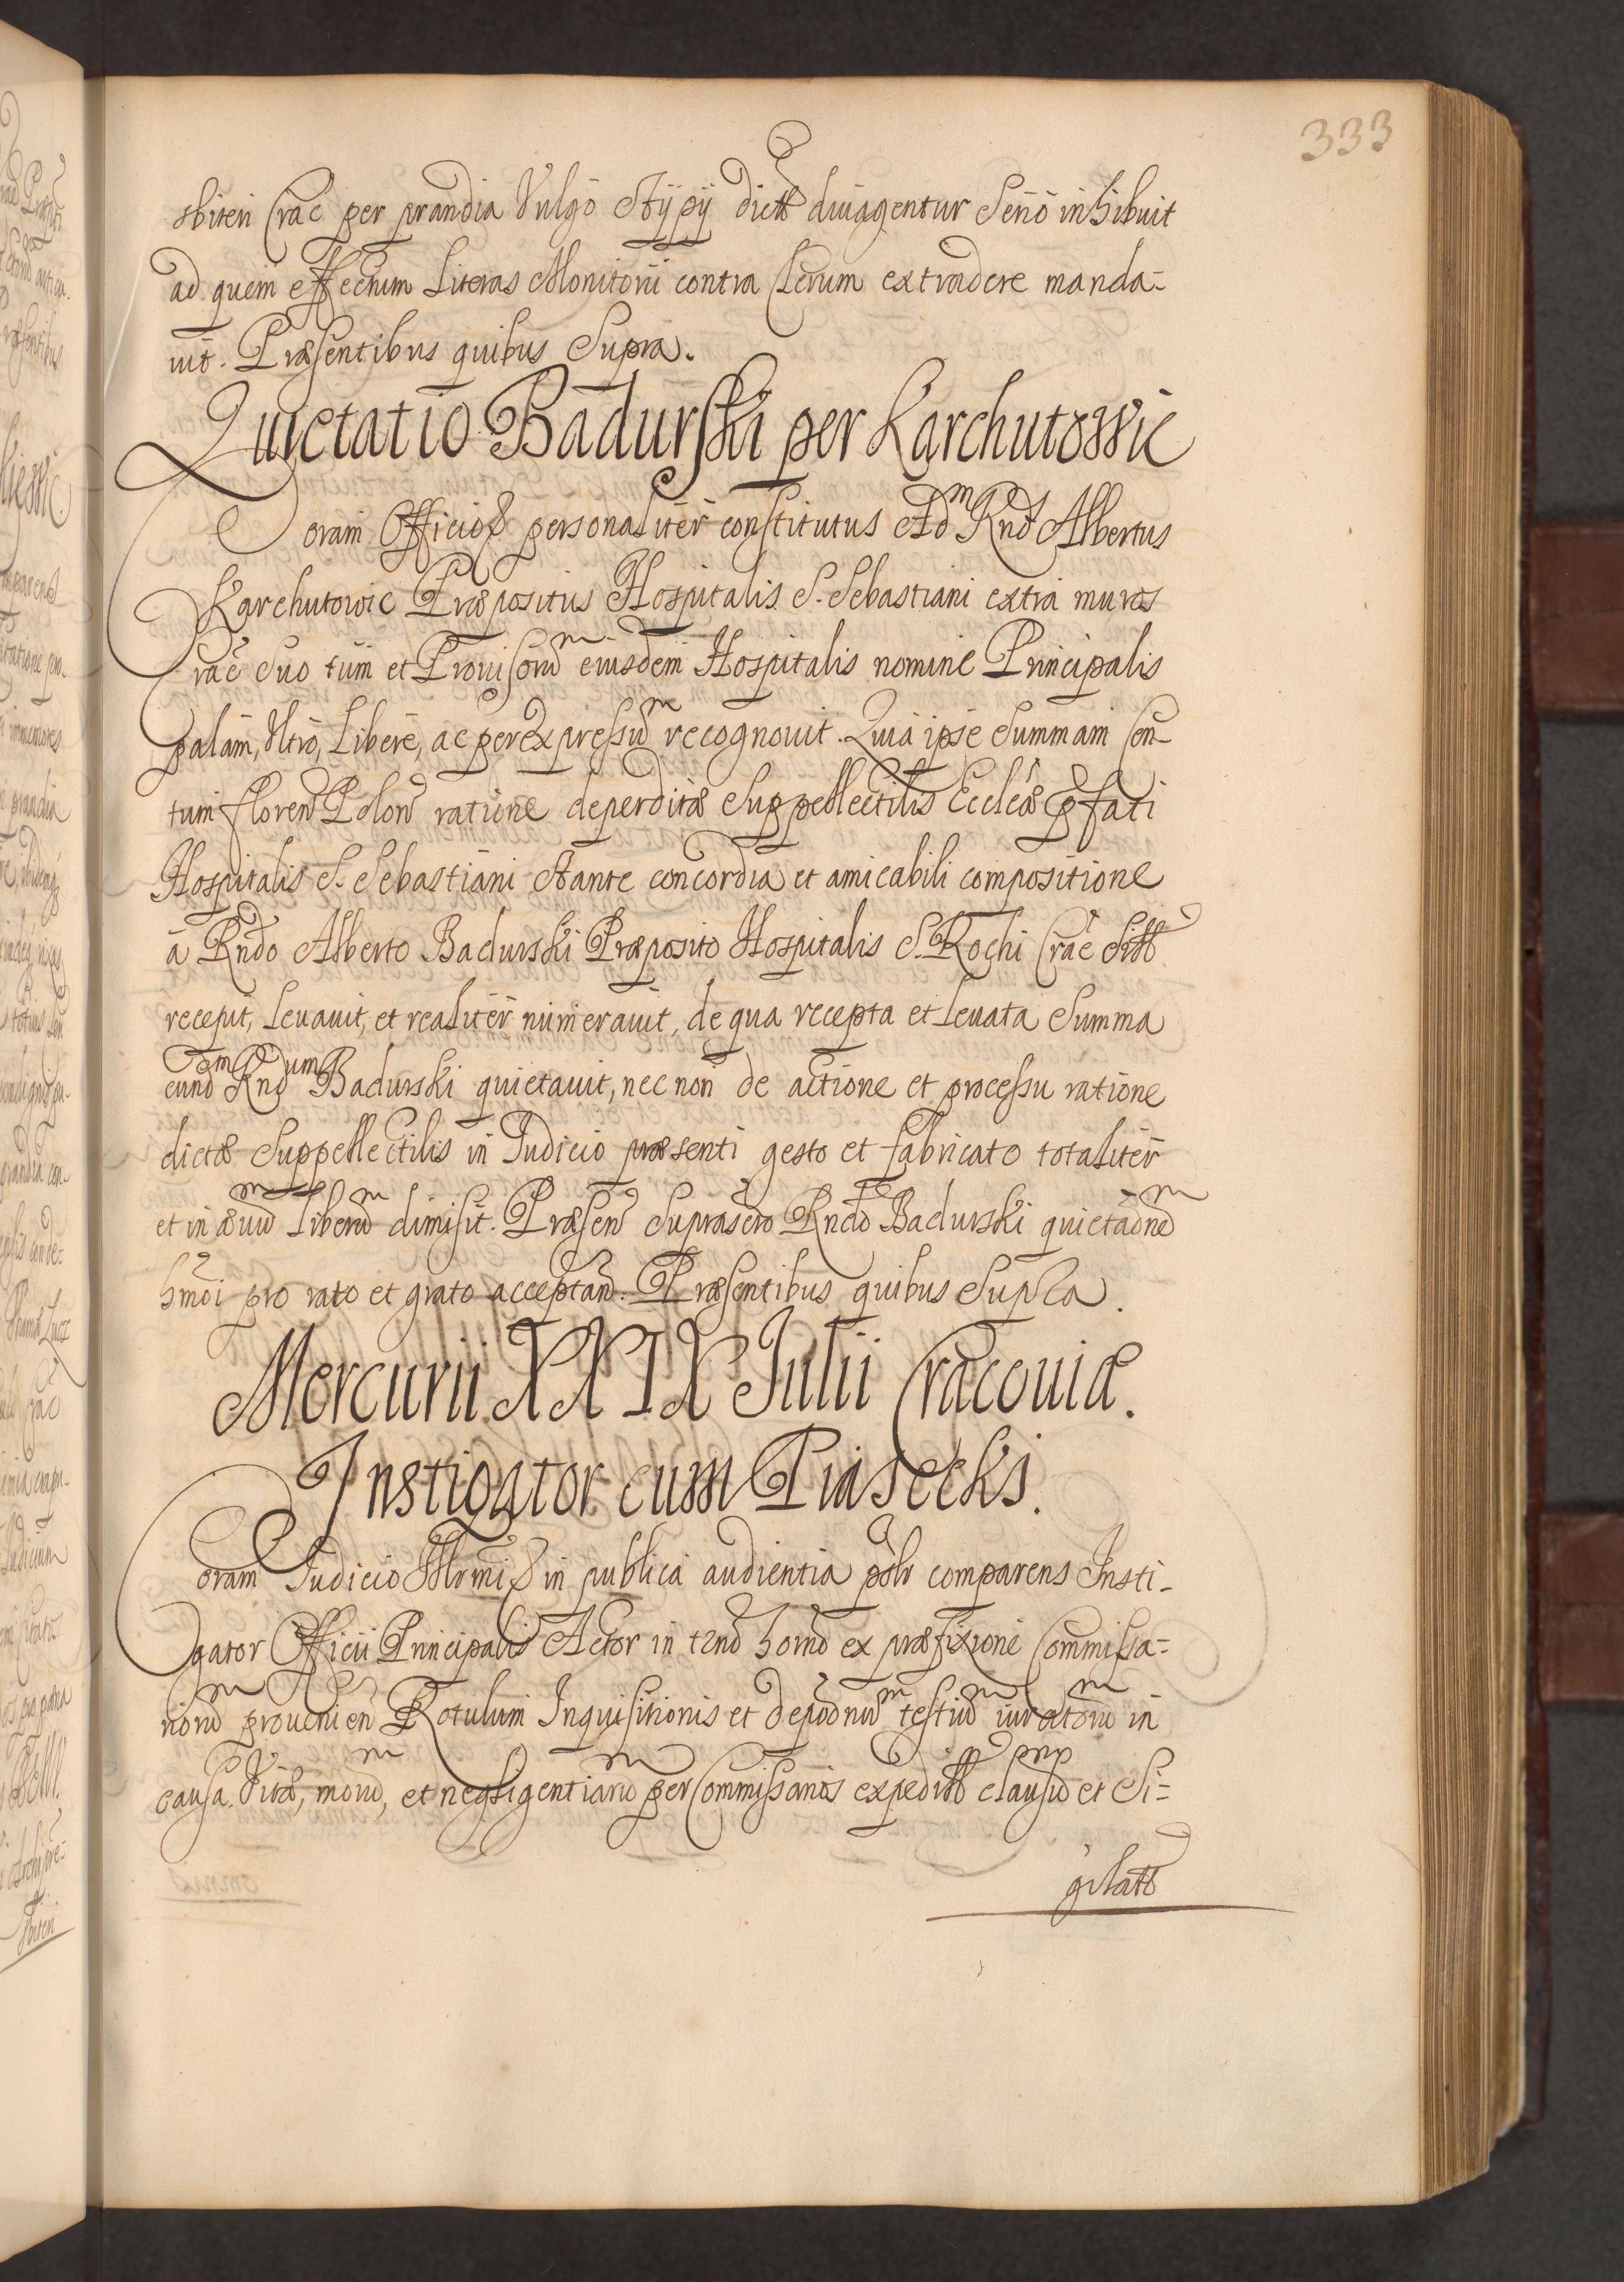 333
sbiteri Crac per prandia Vulgo Stypy dict divagentur Serio inhibuit
ad quem effectum Literas Monitorii contra Clerum extradere manda-
vit. Præsentibus quibus Supra.
Quietatio Badurski per Karchutowic
Coram Officio personaliter constitutus Adm Rnds Albertus
Karchutowic Præpositus Hospitalis S. Sebastiani extra muros
Crac Suo tum et Provisorum eiusdem Hospitalis nomine Principalis
palam, Ultro, Libere, ac per expressum recognovit. Quia ipse Summam Cen-
tum floren Polon ratione deperditæ Suppellectilis Ecclæ pfati
Hospitalis S. Sebastiani Stante concordia et amicabili compositione
a Rndo Alberto Badurski Præposito Hospitalis S. Rochi Crac Sitt
recepit, Levavit, et realiter numeravit, de qua recepta et Levata Summa
eundem Rndum Badurski quietavit, nec non de actione et processu ratione
dictæ Suppellectilis in Iudicio præsenti gesto et fabricato totaliter
et in ævum Liberum dimisit. Præsen Suprascro Rndo Badurski quietaonem
hmoi pro rato et grato acceptan. Præsentibus quibus Supra.
Mercurii XXIX Iulii Cracoviæ.
Instigator cum Piasecki.
Coram Iudicio in publica audientia pslr comparens Insti-
gator Officii Principalis Actor in tno horno ex præfixione Commissa-
riorum provenien Rotulum Inquisitionis et depoonum testium iuratorum in
causa Vitæ, morum, et negligentiarum per Commissarios expeditt clausum et Si-
gilatt